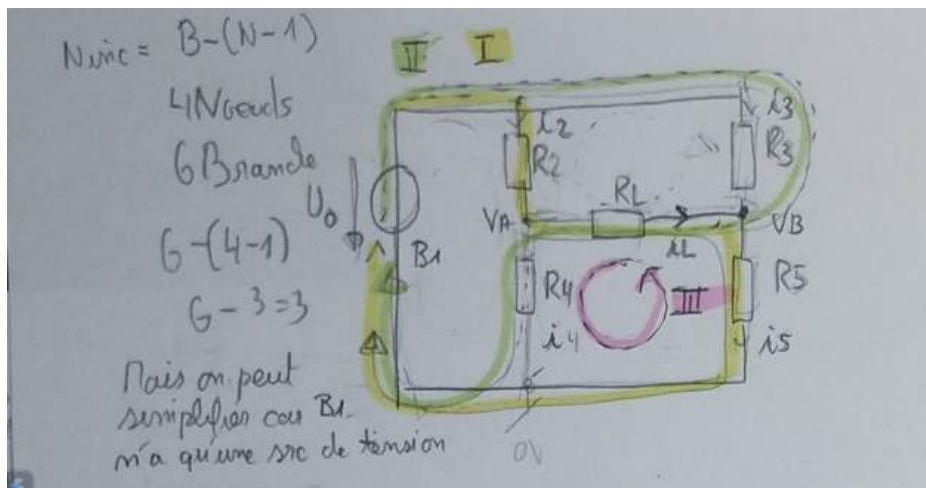 Ninc = B-(N-1)
4 Noeuds
6 Branche
6-(4-1)
6-3=3
Mais on peut
simplifier car B1
n'a qu'une src de tension
II I
U0
B1
i2
R2
i3
R3
RL
VA
VB
iL
R4
i4
III
R5
i5
0V